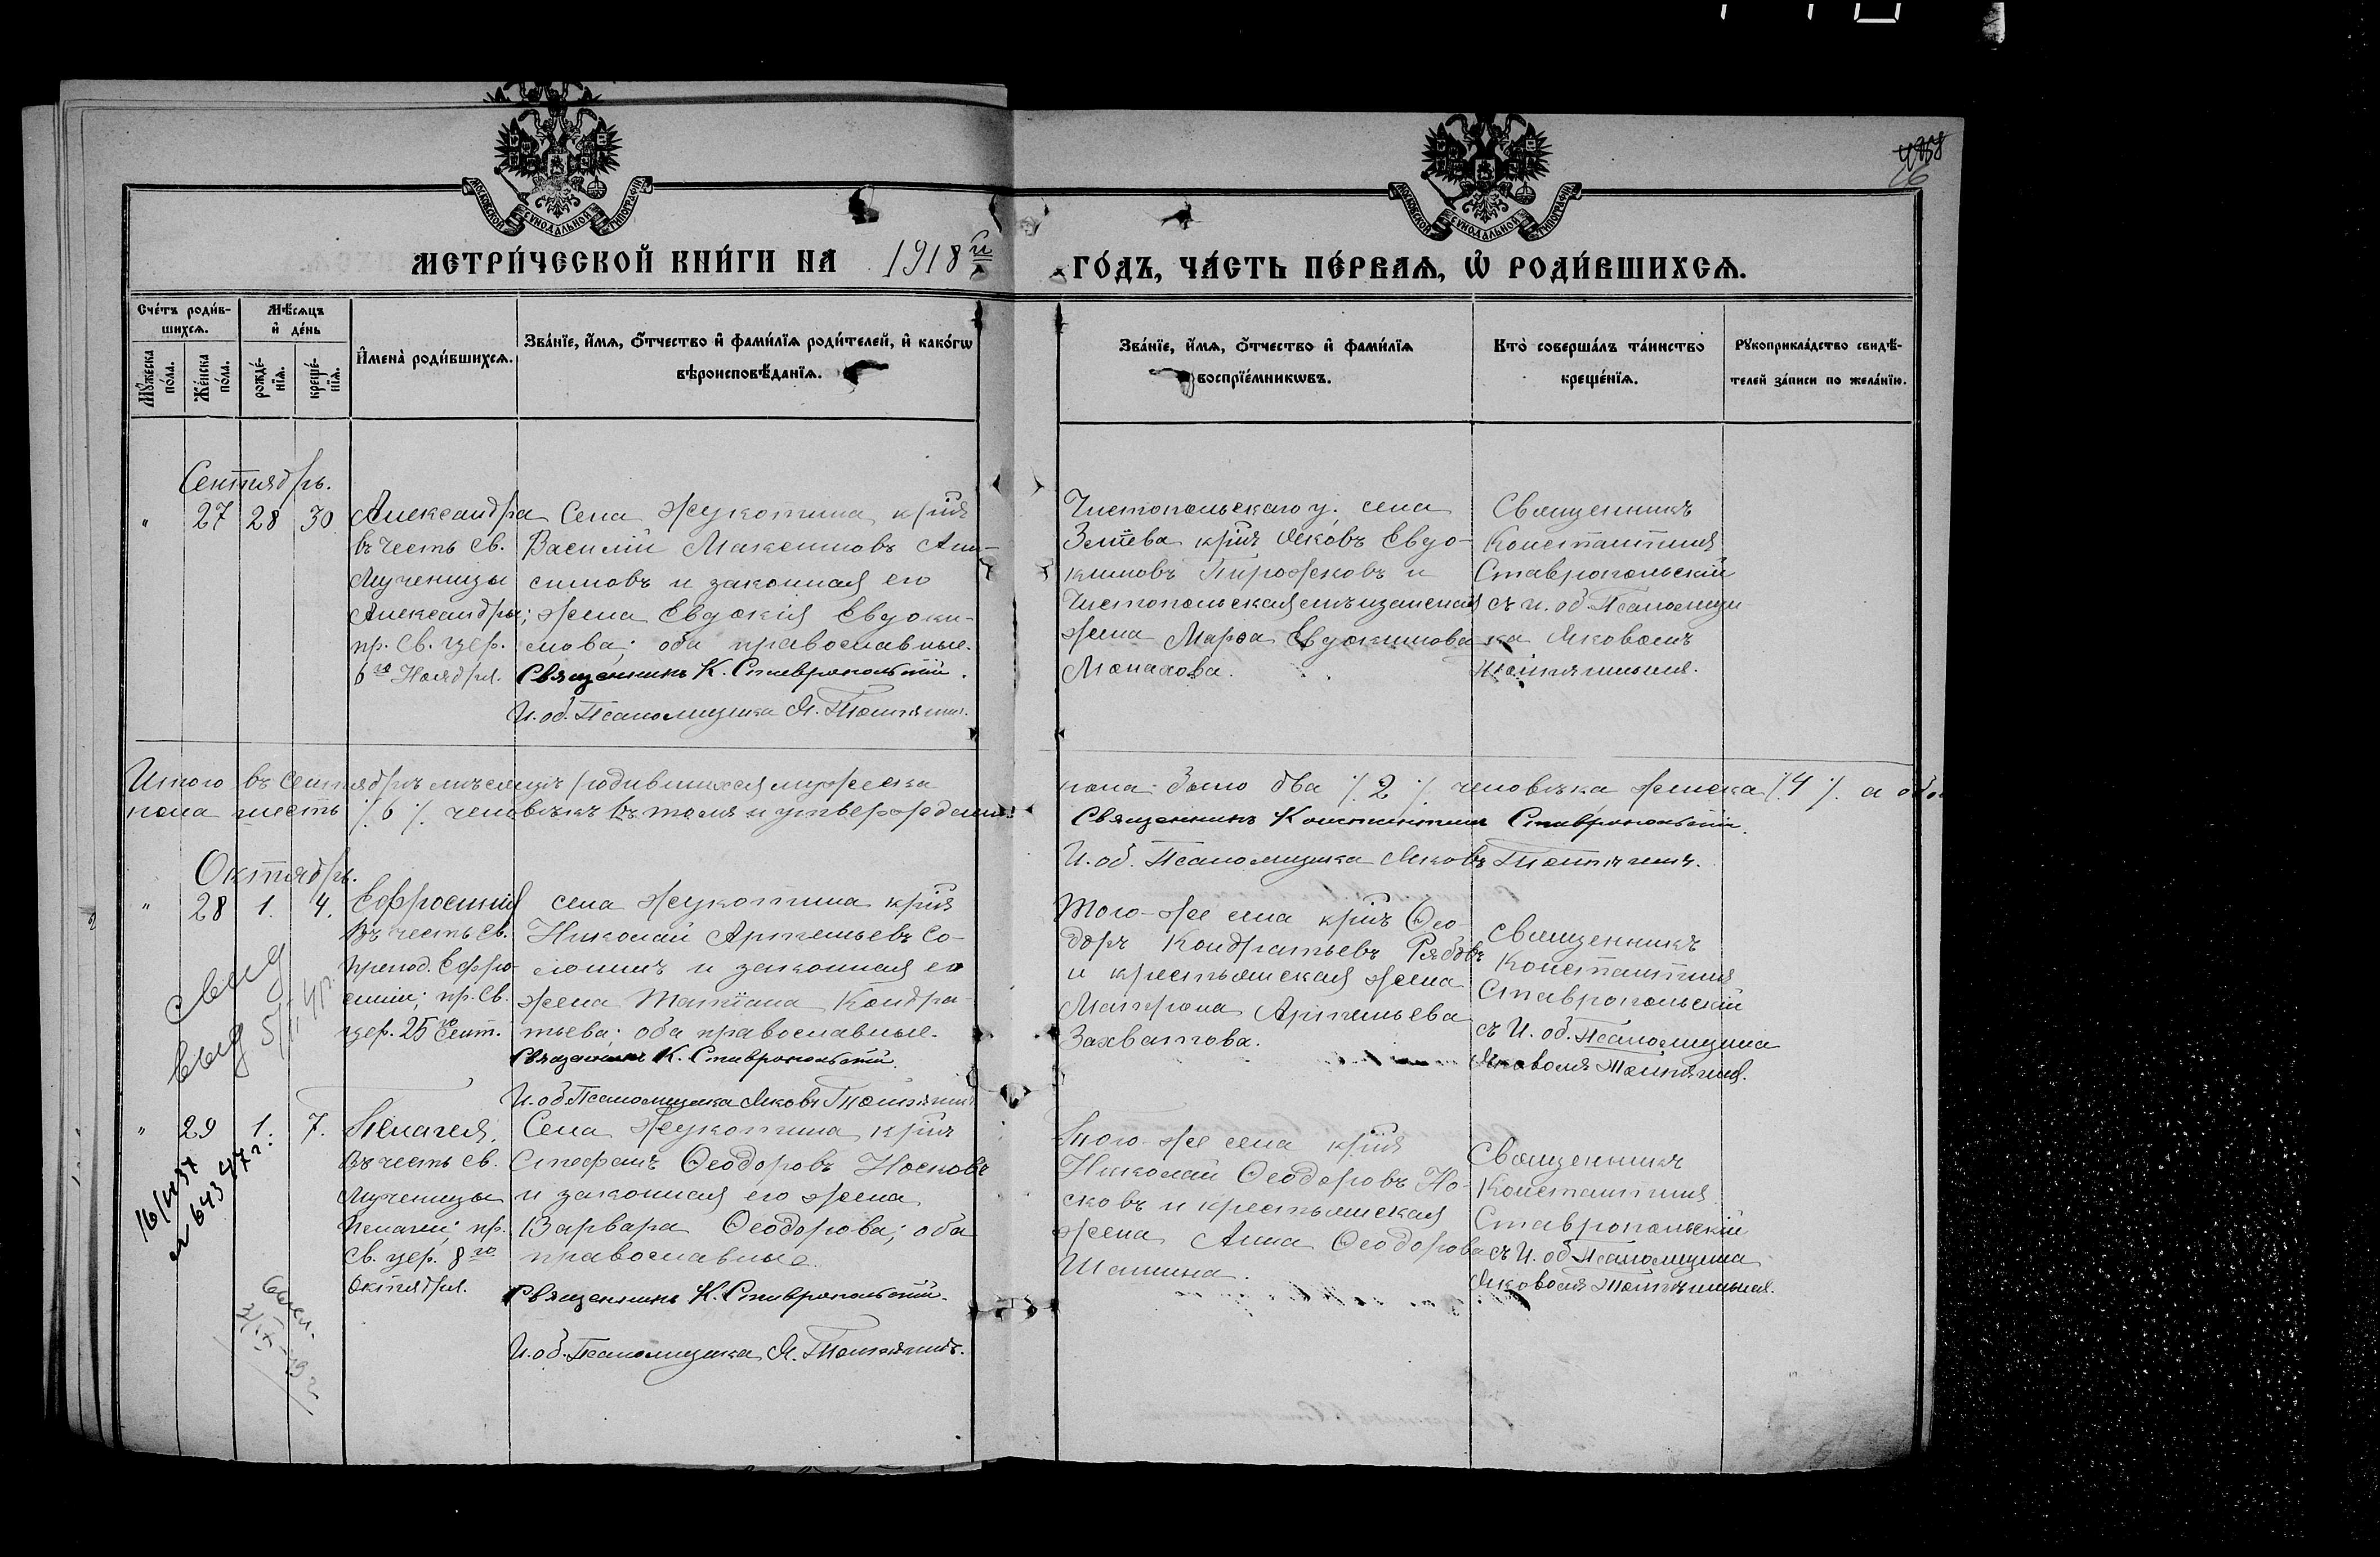 4858
26
МОСКОВСКОЙ СѴНОДАЛЬНОЙ ТИПОГРАФІИ
МОСКОВСКОЙ СѴНОДАЛЬНОЙ ТИПОГРАФІИ
МЕТРИ́ЧЕСКОЙ КНИ́ГИ НА 1918й ГО́ДЪ, ЧА́СТЬ ПЕ́РВАѦ, Ѡ РОДИ́ВШИХСѦ.
Счетъ роди́в-
шихсѧ.
Мꙋжеска
по́ла.
Же́нска
по́ла.
Мѣсѧцъ
и҆ де́нь
рожде́-
нїѧ.
креще́-
нїѧ.
И҆мена̀ роди́вшихсѧ.
Зва́нїе, и҆́мѧ, ѻ҆́тчество и҆ фами́лїѧ роди́телей, и҆ како́гѡ
вѣроисповѣ́данїѧ.
Зва́нїе, и҆́мѧ, ѻ҆́тчество и҆ фами́лїѧ
воспрїе́мникѡвъ.
Кто̀ соверша́лъ та́инство
креще́нїѧ.
Рꙋкоприкла́дство свидѣ́-
телей за́писи по жела́нїю.
Сентябрь.
" 27 28 30
Александра
въ честь св.
Мученицы
Александры;
пр. св. цер.
6го Ноября.
Села Жукотина кр͞нъ
Василій Максимовъ Ани-
симовъ и законная его
жена Евдокія Евдоки-
мова; оба православные.
Священникъ К. Ставропольскій.
И. об. Псаломщика Я.
Чистопольскаго у. села
кр͞нъ Яковъ Евдо-
кимовъ Пирожковъ и
Чистопольская мѣщанская
жена Марѳа Евдокимова
Монахова.
Священникъ
Константинъ
Ставропольскій
съ и. об. Псаломщи
ка Яковомъ
Итого въ сентябрѣ мѣсяцѣ родившихся мужеска
пола было два ·/. 2 ·/. человѣка женска ·/. 4 ·/. а обо
пола шесть ·/. 6 ·/. человѣкъ въ томъ и утверждаемъ:
Священникъ Константинъ Ставропольскій.
И. об. Псаломщика Яковъ
Октябрь.
" 28 1. 4.
Евфросинія
Въ честь св.
препод. Евфро-
синіи; пр. св.
цер. 25го Сент.
села Жукотина кр͞нъ
Николай Артемьевъ Со-
ломинъ и законная его
жена Татіана Кондра-
тьева; оба православные.
Священникъ К. Ставропольскій.
И. об. Псаломщика Яковъ
Того-же села кр͞нъ Ѳео-
доръ Кондратьевъ Рябовъ
и крестьянская жена
Матрона Артемьева
Захватова.
Священникъ
Константинъ
Ставропольскій
съ И. об. Псаломщика
Яковомъ
" 29 1. 7.
Пелагея.
Въ честь св.
Мученицы
Пелагеи; пр.
св. цер. 8го
октября.
Села Жукотина кр͞нъ
Стефанъ Ѳеодоровъ Носковъ
и законная его жена
Варвара Ѳеодорова; оба
православные.
Священникъ К. Ставропольскій.
И. об. Псаломщика Я.
Того-же села кр͞нъ
Николай Ѳеодоровъ Но-
сковъ и крестьянская
жена Анна Ѳеодорова
Шашина.
Священникъ
Константинъ
Ставропольскій
съ И. об. Псаломщика
Яковомъ